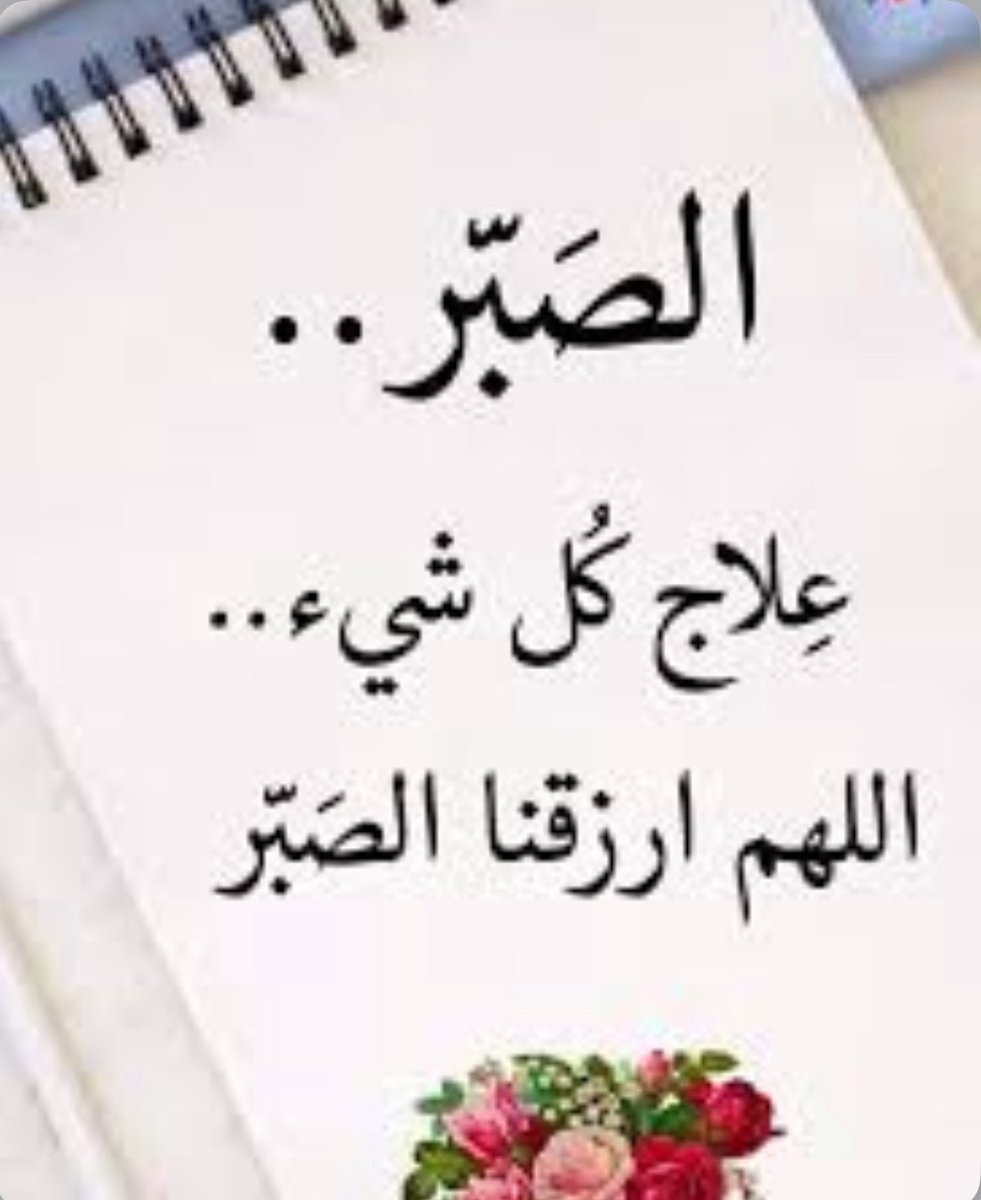 الصَبّر..
عِلاج كُل شيء..
اللهم ارزقنا الصَبّر